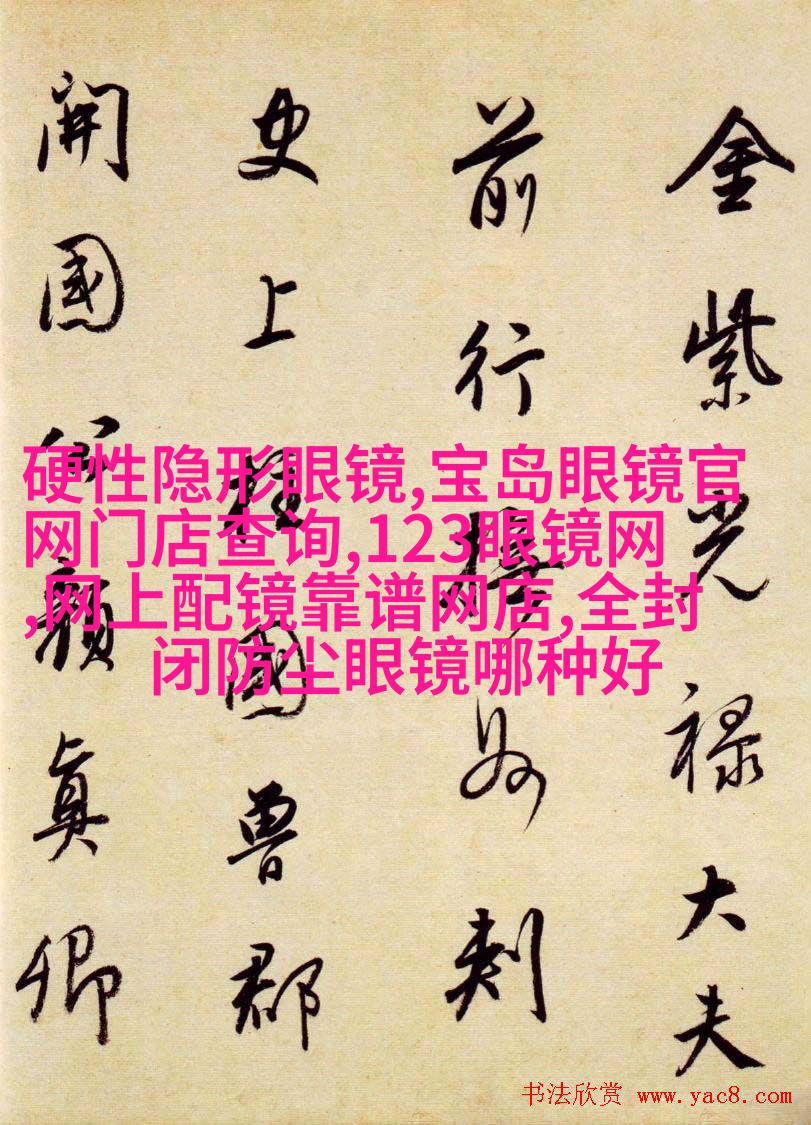 金紫光禄大夫
前行撫州刺
史上柱國魯郡
開國公顏真卿
硬性隐形眼镜,宝岛眼镜官
网门店查询,123眼镜网
,网上配镜靠谱网店,全封
闭防尘眼镜哪种好
书法欣赏 www.yac8.com